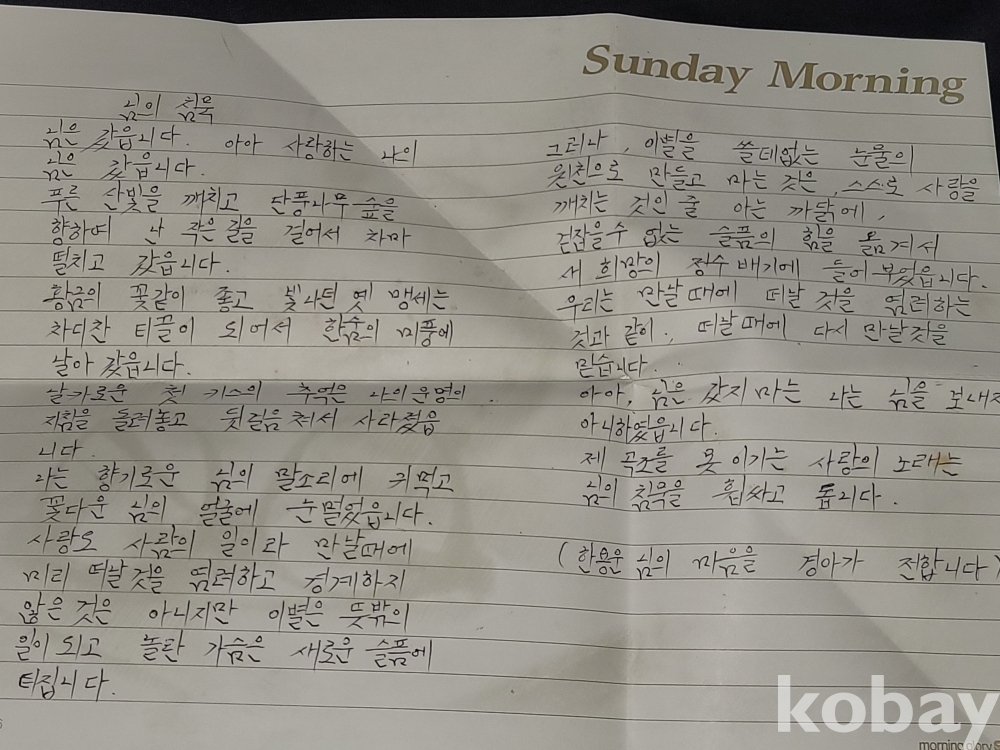 Sunday Morning
님의 침묵
님은 갔읍니다. 아아 사랑하는 나의
님은 갔읍니다.
푸른 산빛을 깨치고 단풍나무숲을
향하여 난 작은 길을 걸어서 차마
떨치고 갔읍니다.
황금의 꽃같이 좋고 빛나던 옛 맹세는
차디찬 티끌이 되어서 한숨의 미풍에
날아 갔읍니다.
날카로운 첫 키스의 추억은 나의 운명의
지침을 돌려놓고 뒷걸음쳐서 사라졌읍
니다.
나는 향기로운 님의 말소리에 귀먹고
꽃다운 님의 얼굴에 눈멀었읍니다.
사랑도 사람의 일이라 만날때에
미리 떠날것을 염려하고 경계하지
않은 것은 아니지만 이별은 뜻밖의
일이 되고 놀란 가슴은 새로운 슬픔에
터집니다.
그러나, 이별을 쓸데없는 눈물의
원천으로 만들고 마는 것은, 스스로 사랑을
깨치는 것인 줄 아는 까닭에,
걷잡을수 없는 슬픔의 힘을 옮겨서
새 희망의 정수배기에 들어부었읍니다.
우리는 만날때에 떠날 것을 염려하는
것과 같이, 떠날때에 다시 만날것을
믿습니다.
아아, 님은 갔지마는 나는 님을 보내지
아니하였읍니다.
제 곡조를 못 이기는 사랑의 노래는
님의 침묵을 휩싸고 돕니다.
(한용운 님의 마음을 경아가 전합니다)
kobay
morning glory
6